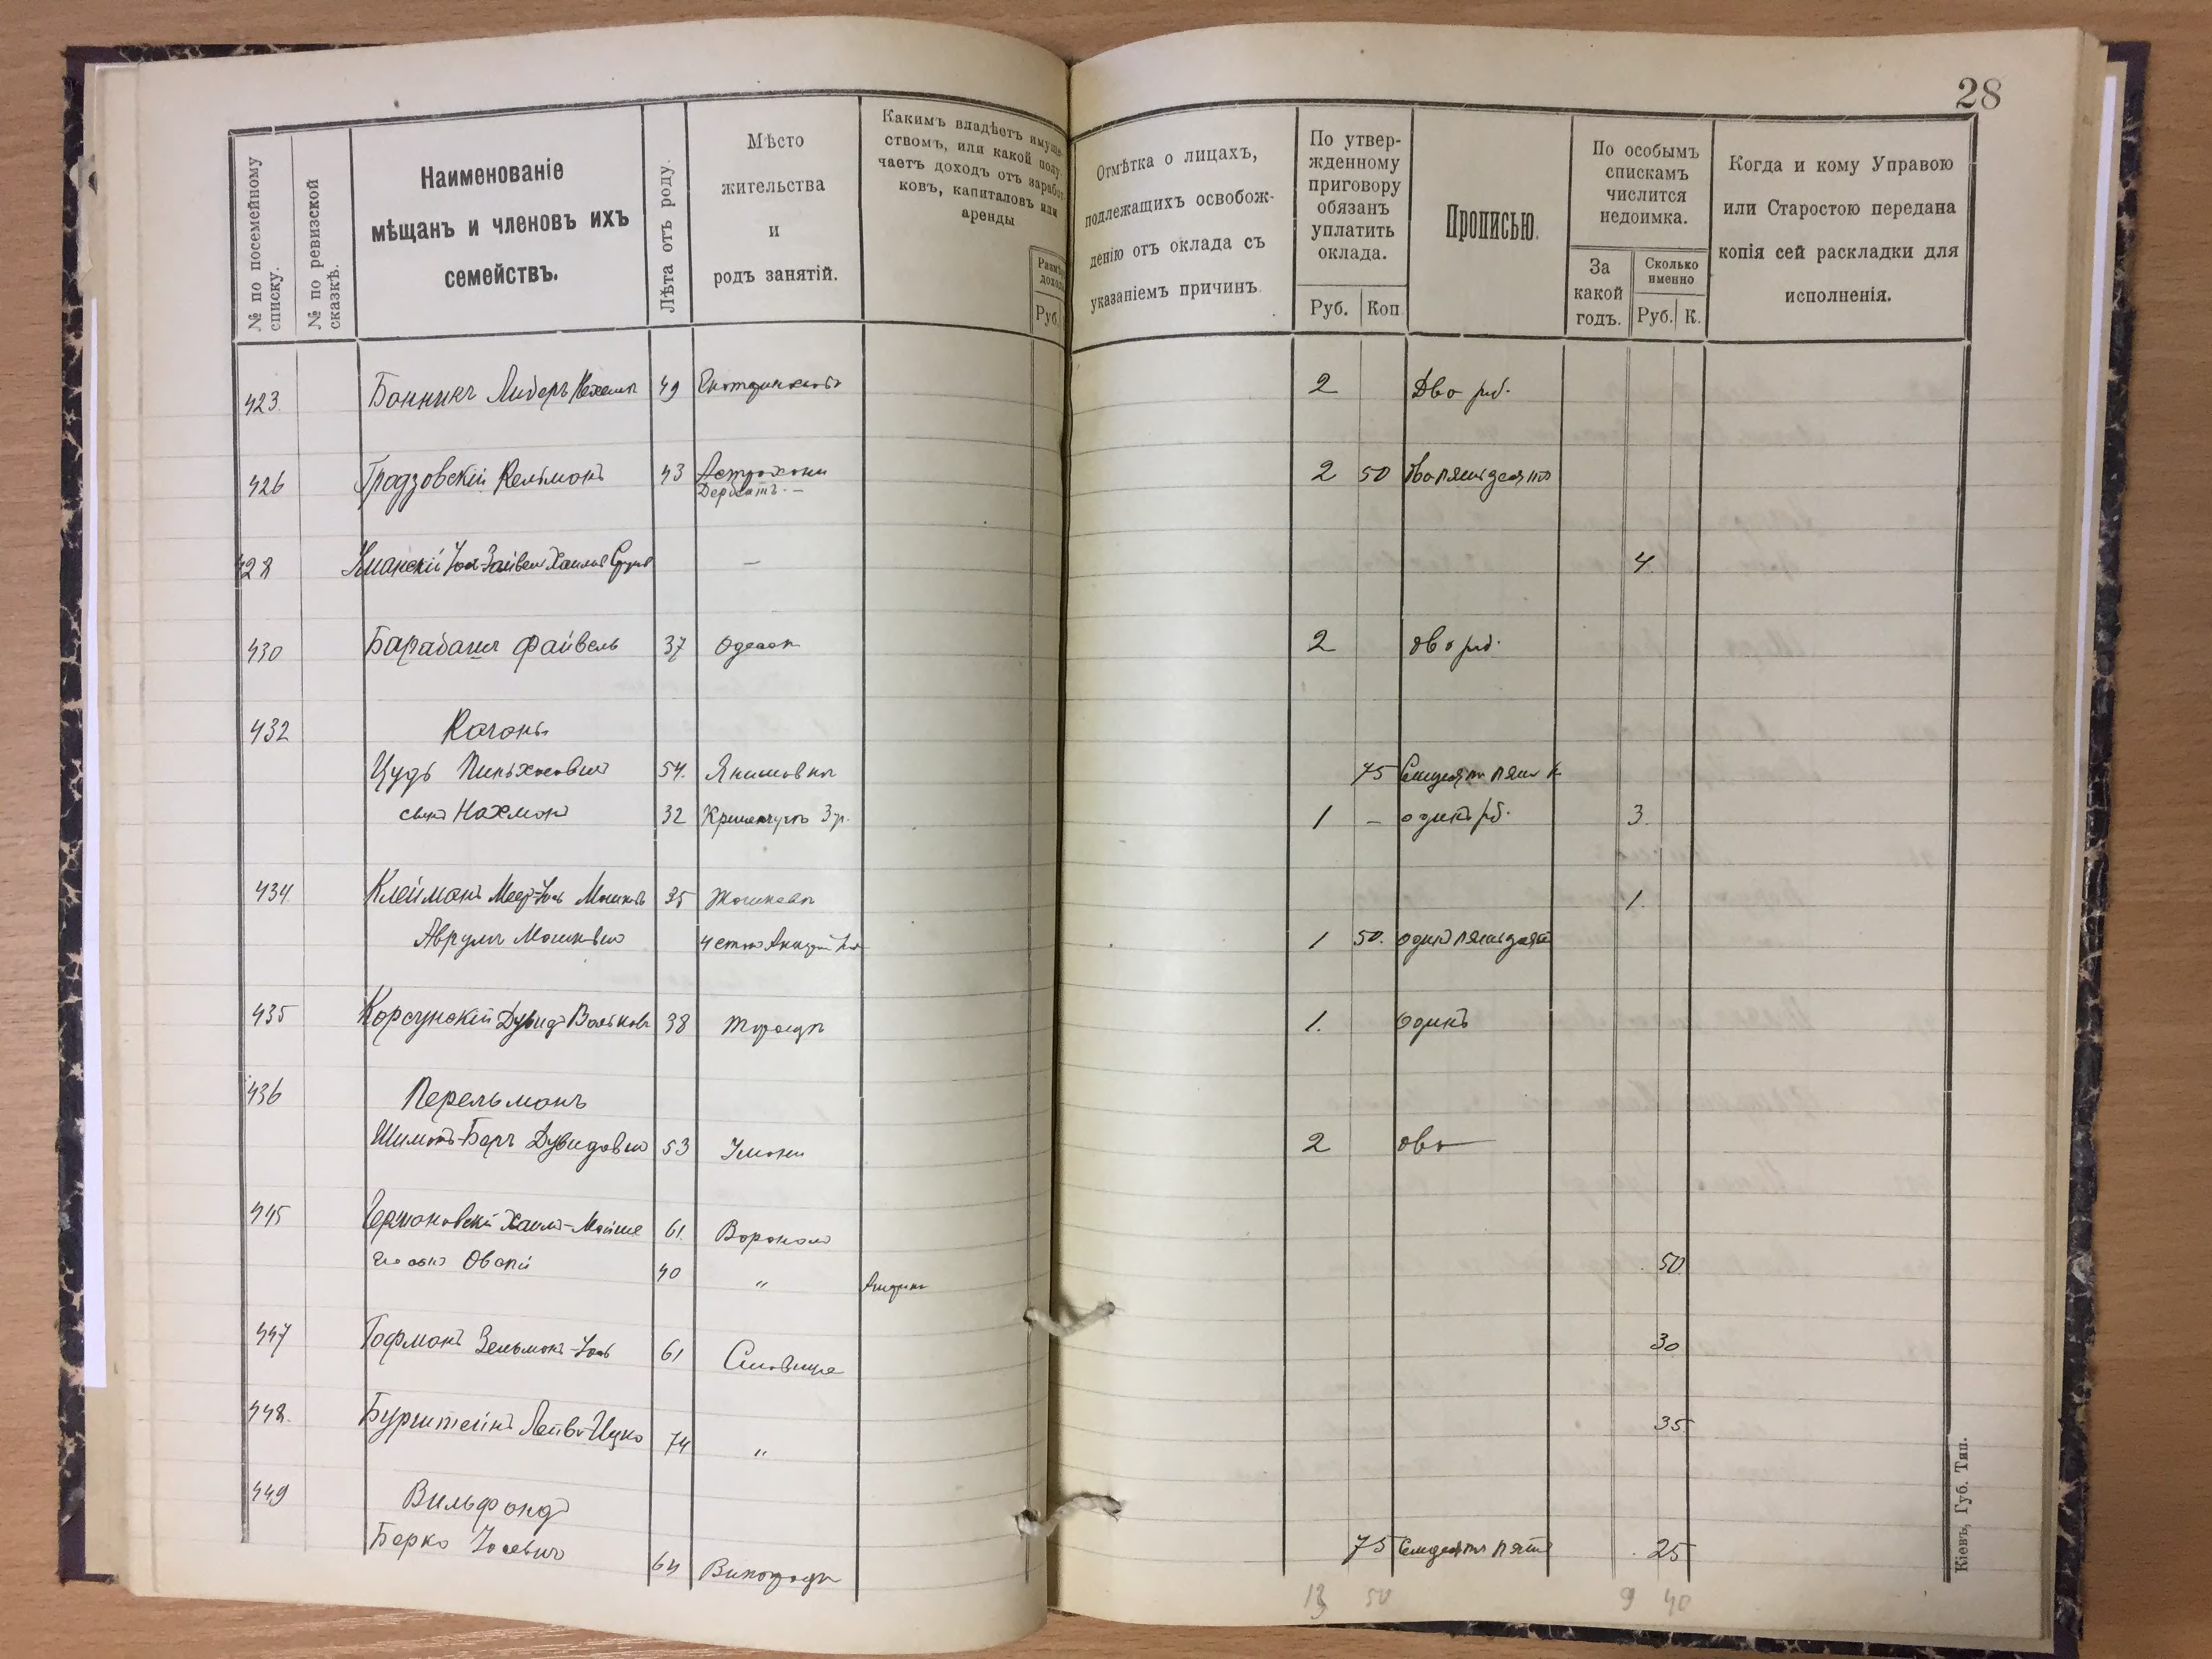 28
№ по посемейному списку.
№ по ревизской сказкѣ.
Наименованіе
мѣщанъ и членовъ ихъ
семействъ.
Лѣта отъ роду.
Мѣсто
жительства
и
родъ занятій.
Какимъ владѣетъ имуще-
ствомъ, или какой полу-
чаетъ доходъ отъ заработ-
ковъ, капиталовъ или
аренды
Руб.
Отмѣтка о лицахъ,
подлежащихъ освобож-
денію отъ оклада съ
указаніемъ причинъ
По утвер-
жденному
приговору
обязанъ
уплатить
оклада.
Руб. Коп
Прописью.
По особымъ
спискамъ
числится
недоимка.
За
какой
годъ.
Сколько
именно
Руб. К.
Когда и кому Управою
или Старостою передана
копія сей раскладки для
исполненія.
423. Банникъ Либеръ 49 2 Два рб.
426 Градзовскій Кельманъ 43 Астрахани 2 50 два пятьдесятъ
Дербентъ. —
428 — 4
430 Барабанъ Файвель 37 Одесса 2 два рб.
432 Каганъ
Цудъ Пиньхасовичъ 54. Якимовка 75 Семдесятъ пять к.
сынъ Нахманъ 32 Кременчугъ 3 гр. 1 — одинъ рб. 3
434. Клейманъ Меер-Іось Мошковъ 35 Жашковъ 1.
Аврумъ Мошковичъ 1 50. один пятьдесятъ
435 Корсунскій Дувидъ Вольковъ 38 Тараща 1. Одинъ
436 Перельманъ
Шимонъ-Беръ Дувидовичъ 53 Умани 2 два
445 Хаимъ-Мойше 61. Вороное
его сынъ Овсей 40 " 50
447 Гофманъ Зельманъ-Іось 61 30
448. Бурштейнъ Лейба-Ицко 74 " 35
449 Вильфандъ
Берко Іосевичъ 64 Виноградъ 75 Семдесятъ пять 25
13 50 9 40
Кіевъ, Губ. Тип.